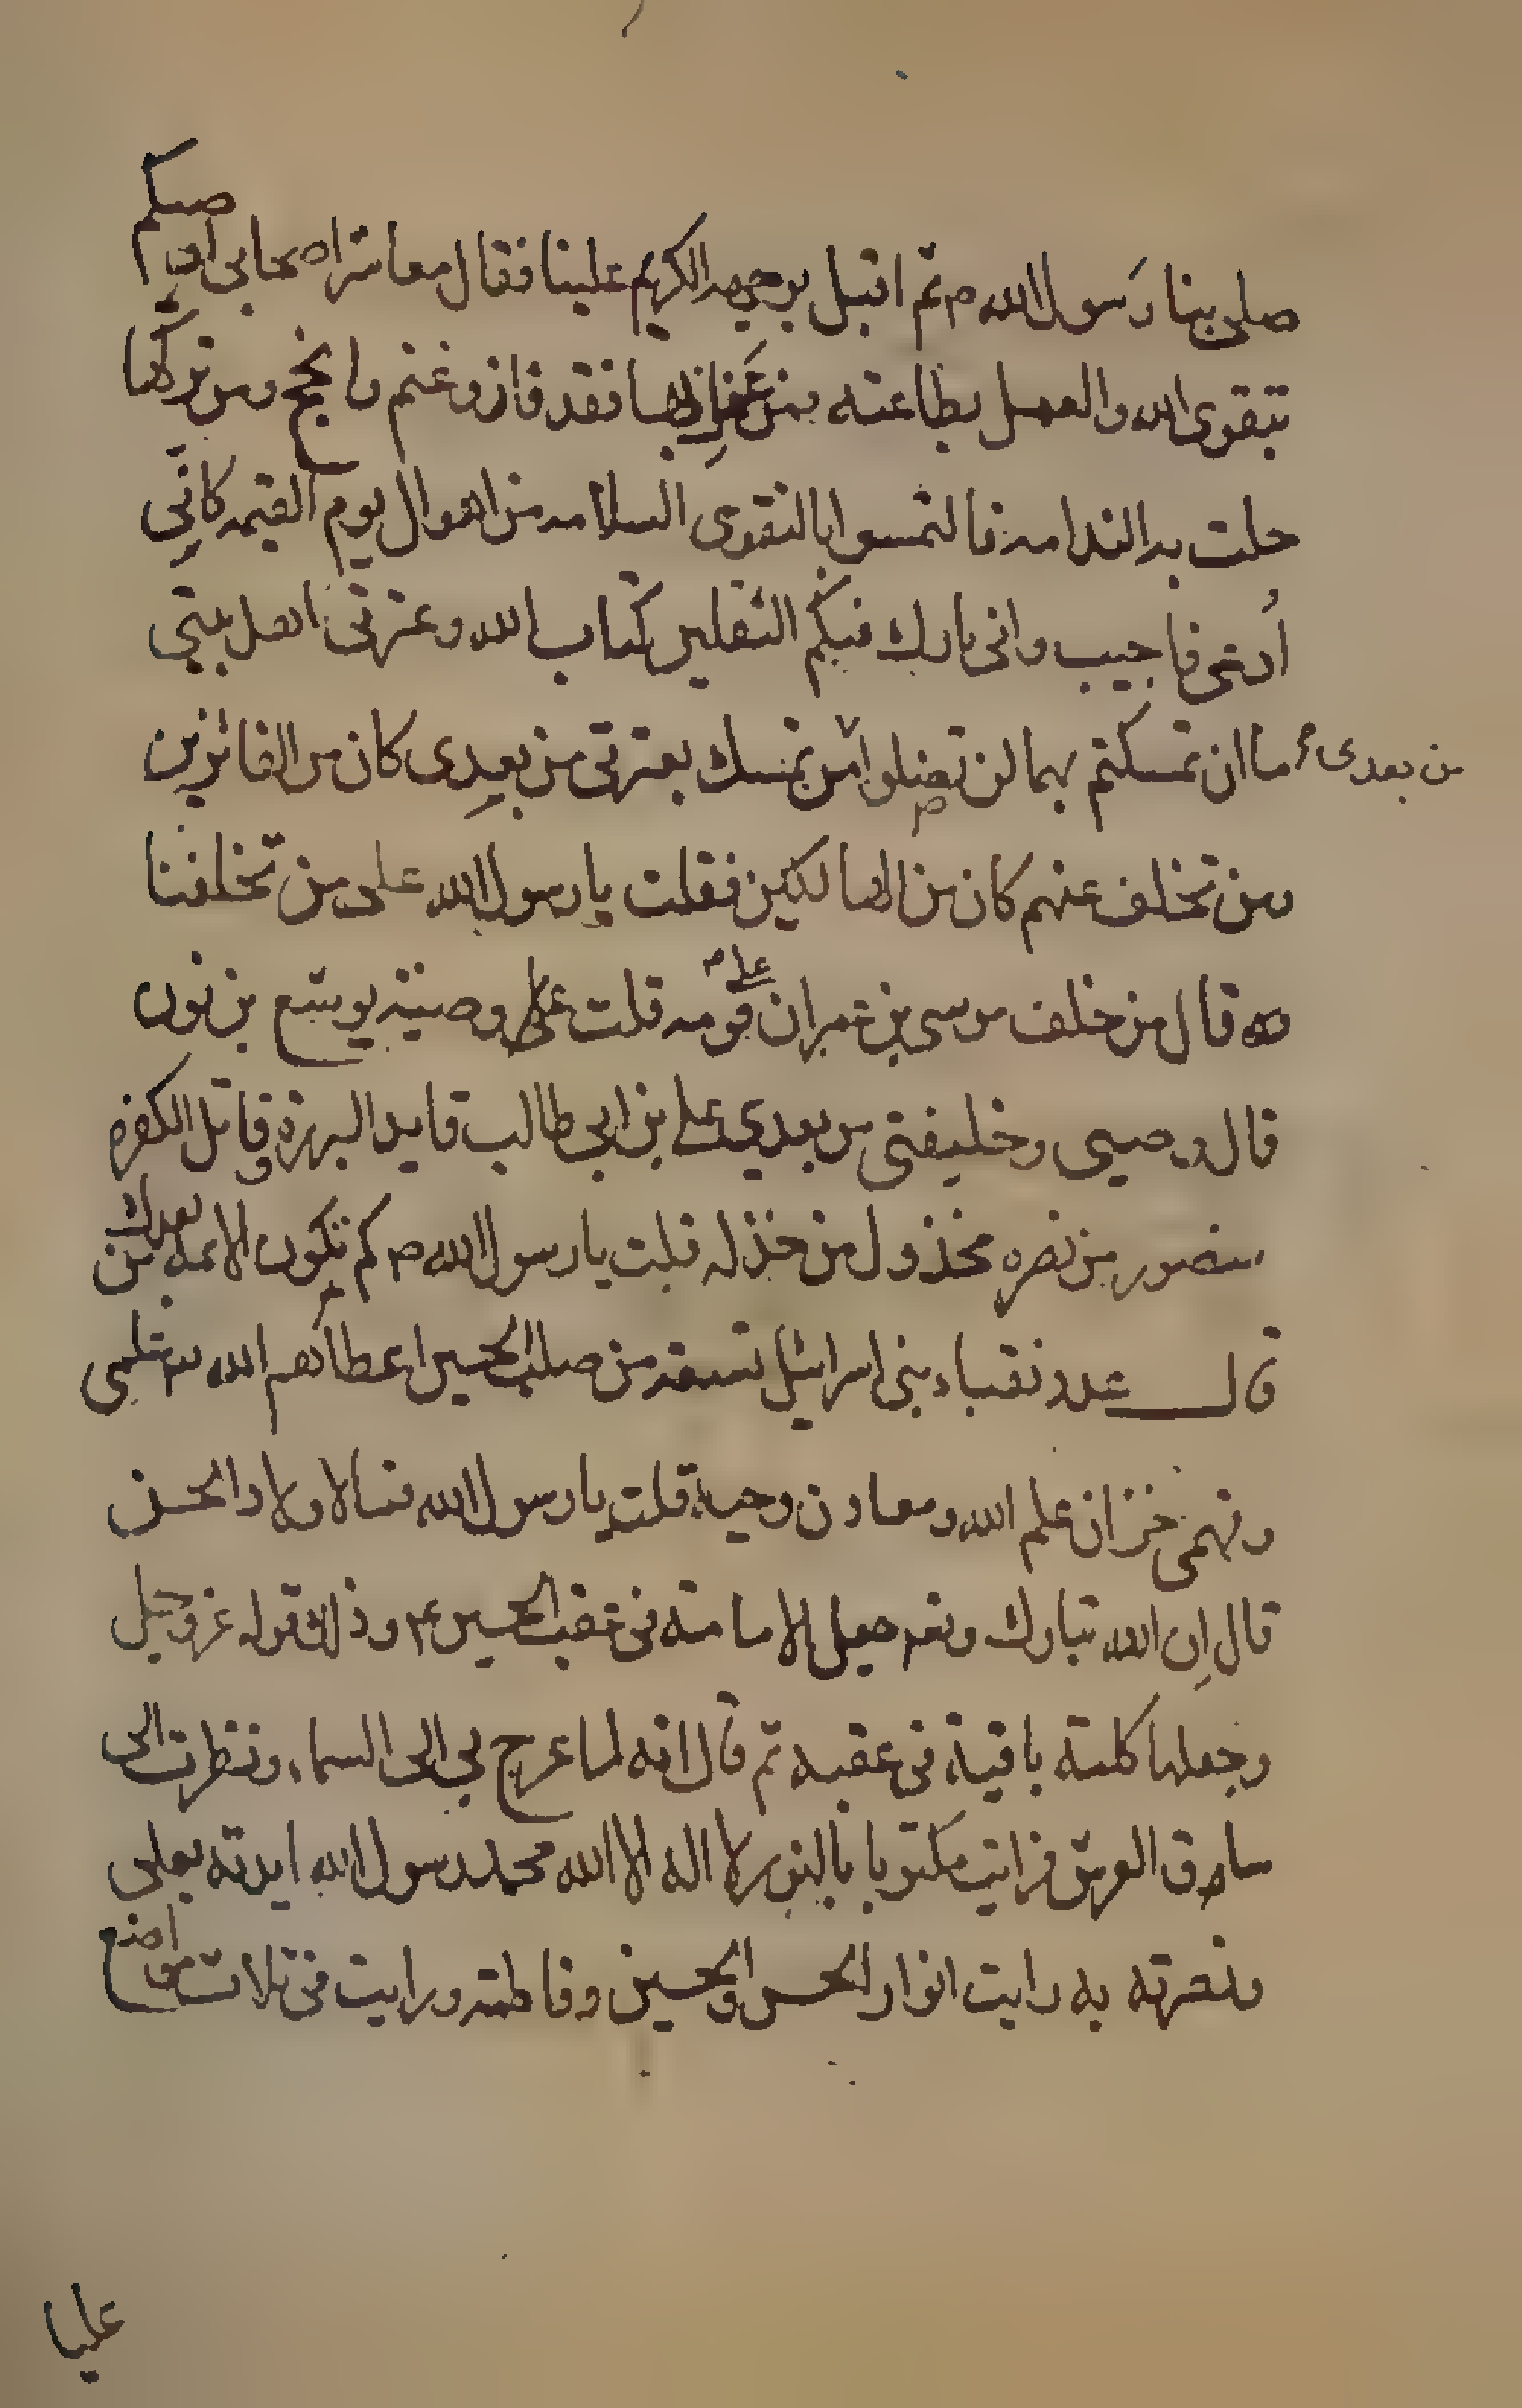 صلى بنا رسول الله ص ثم اقبل بوجهه الكريم علينا فقال معاشر اصحابى اوصيكم
بتقوى الله والعمل بطاعته فمن عمل بها فقد فاز وغنم وانجح ومن تركها
حلت به الندامه فالتمسوا بالتقوى السلامه من اهوال يوم القيمه كانى
أدعى فاجيب وانى تارك فيكم الثقلين كتاب الله وعترتى اهل بيتى
ما ان تمسكتم بهما لن تضلوا من بعدى ومن تمسك بعترتى من بعدى كان من الفائزين
ومن تخلف عنهم كان من الهالكين فقلت يا رسول الله على من تخلفنا
قال من خلف موسى بن عمران علي قومه قلت على وصيه يوشع بن نون
قال وصيى وخليفتى من بعدي على بن ابى طالب قايد البررة وقاتل الكفره
منصور من نصره مخذول من خذله قلت يا رسول الله ص كم تكون الائمة من بعدك
قال عدد نقباء بنى اسرائيل تسعة من صلب الحسين اعطاهم الله علمى
وفهمى خزان علم الله ومعادن وحيه قلت يا رسول الله فما لاولاد الحسن
قال ان الله تبارك وتعه جعل الامامة فى عقب الحسين ع وذلك قوله عز وجل
وجعلها كلمة باقية فى عقبه ثم قال انه لما عرج بي الى السماء ونظرت الى
ساق العرش فرايت مكتوبا بالنور لا اله الا الله محمد رسول الله ايدته بعلى
ونصرته به رايت انوار الحسن والحسين وفاطمة ورايت فى ثلاث مواضع
عليا